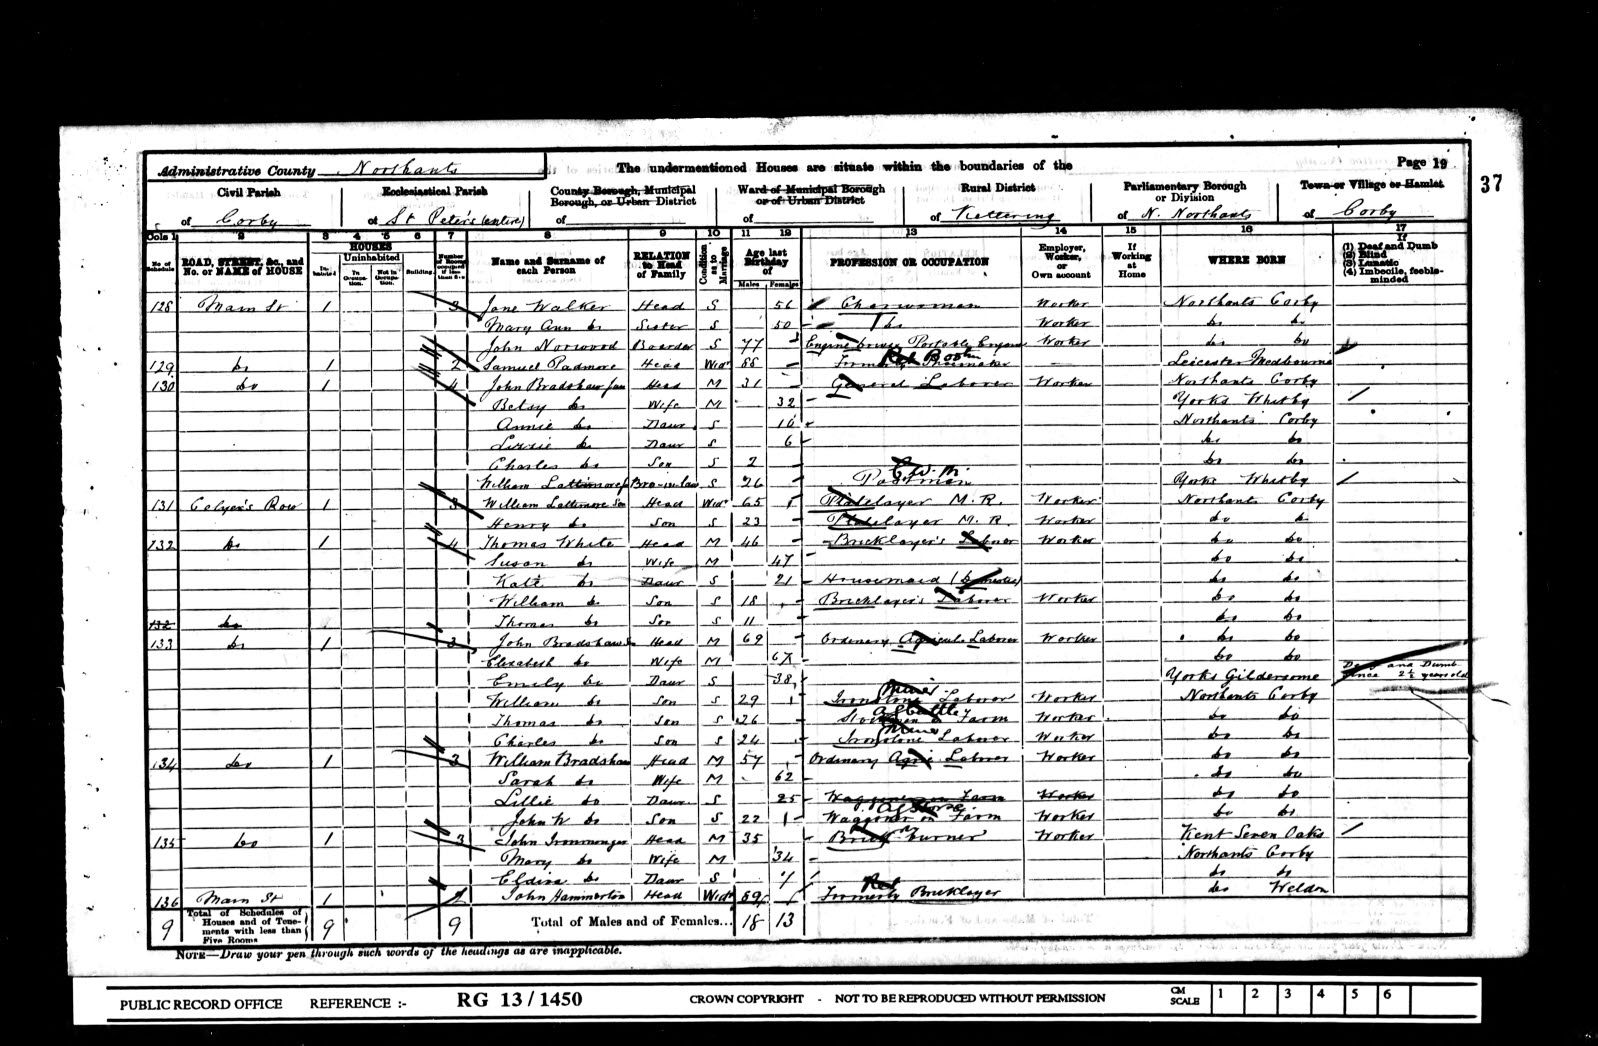 Administrative County Northants
The undermentioned Houses are situate within the boundaries of the
Page 19
37
Civil Parish
of Corby
Ecclesiastical Parish
of St Peter's (entire)
County Borough, Municipal
Borough, or Urban District
of
Ward of Municipal Borough
or of Urban District
of
Rural District
of Kettering
Parliamentary Borough
or Division
of N. Northants
Town or Village or Hamlet
of Corby
Cols 1 2 3 4 5 6 7 8 9 10 11 12 13 14 15 16 17
No. of Schedule
ROAD, STREET, &c., and No. or NAME of HOUSE
HOUSES
Inhabited
Uninhabited
In Occupation.
Not in Occupation.
Building.
Number of Rooms occupied if less than five
Name and Surname of each Person
RELATION to Head of Family
Condition as to Marriage
Age last Birthday of
Males Females
PROFESSION OR OCCUPATION
Employer, Worker, or Own account
If Working at Home
WHERE BORN
If
(1) Deaf and Dumb
(2) Blind
(3) Lunatic
(4) Imbecile, feeble-minded
128 Main St 1 3 Jane Walker Head S 56 Charwoman Worker Northants Corby
Mary Ann do Sister S 50 do Worker do do
John Norwood Boarder S 77 Engine Driver Portable Engine Worker do do
129 do 1 2 Samuel Padmore Head Widr 88 Formerly Shoemaker Leicester Medbourne
130 do 1 4 John Bradshaw Jun Head M 31 General Laborer Worker Northants Corby
Betsy do Wife M 32 Yorks Whitby
Annie do Daur S 10 Northants Corby
Lizzie do Daur S 6 do do
Charles do Son S 2 do do
William Lattimore Bro-in-law S 26 Postman Yorks Whitby
131 Colyer's Row 1 3 William Lattimore Sen Head Widr 65 Platelayer M.R. Worker Northants Corby
Henry do Son S 23 Platelayer M.R. Worker do do
132 do 1 4 Thomas White Head M 46 Bricklayer's Laborer Worker do do
Susan do Wife M 47 do do
Kate do Daur S 21 Housemaid (Domestic) do do
William do Son S 18 Bricklayer's Laborer Worker do do
132 do Thomas do Son S 11 do do
133 do 1 3 John Bradshaw Sen Head M 69 Ordinary Agricult Laborer Worker do do
Elizabeth do Wife M 67 do do
Emily do Daur S 38 Yorks Gildersome Deaf and Dumb since 2½ years old
William do Son S 29 Ironstone Miner Laborer Worker Northants Corby
Thomas do Son S 26 Stockman on Farm Cattle Worker do do
Charles do Son S 24 Ironstone Miner Laborer Worker do do
134 do 1 3 William Bradshaw Head M 57 Ordinary Agric Laborer Worker do do
Sarah do Wife M 62 do do
Lillie do Daur S 25 Waggoner on Farm Worker do do
John W do Son S 22 Waggoner on Farm Horse Worker do do
135 do 1 3 John Ironmonger Head M 35 Brick Burner Worker Kent Seven Oaks
Mary do Wife M 34 Northants Corby
do Daur S 7 do do
136 Main St 1 John Hammerton Head Widr 69 Formerly Bricklayer do Weldon
9 Total of Schedules of Houses and of Tenements with less than Five Rooms 9 9 Total of Males and of Females... 18 13
NOTE—Draw your pen through such words of the headings as are inapplicable.
PUBLIC RECORD OFFICE REFERENCE :- RG 13 / 1450 CROWN COPYRIGHT - NOT TO BE REPRODUCED WITHOUT PERMISSION CM SCALE 1 2 3 4 5 6